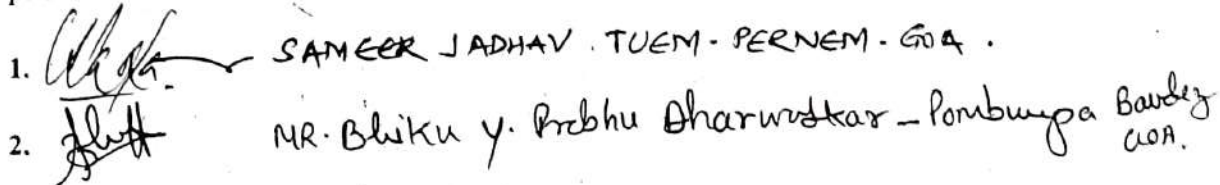 1. SAMEER JADHAV. TUEM - PERNEM - GOA.
2. MR. Bhiku Y. Prabhu Dharwatkar - Pomburpa Bardez GOA.